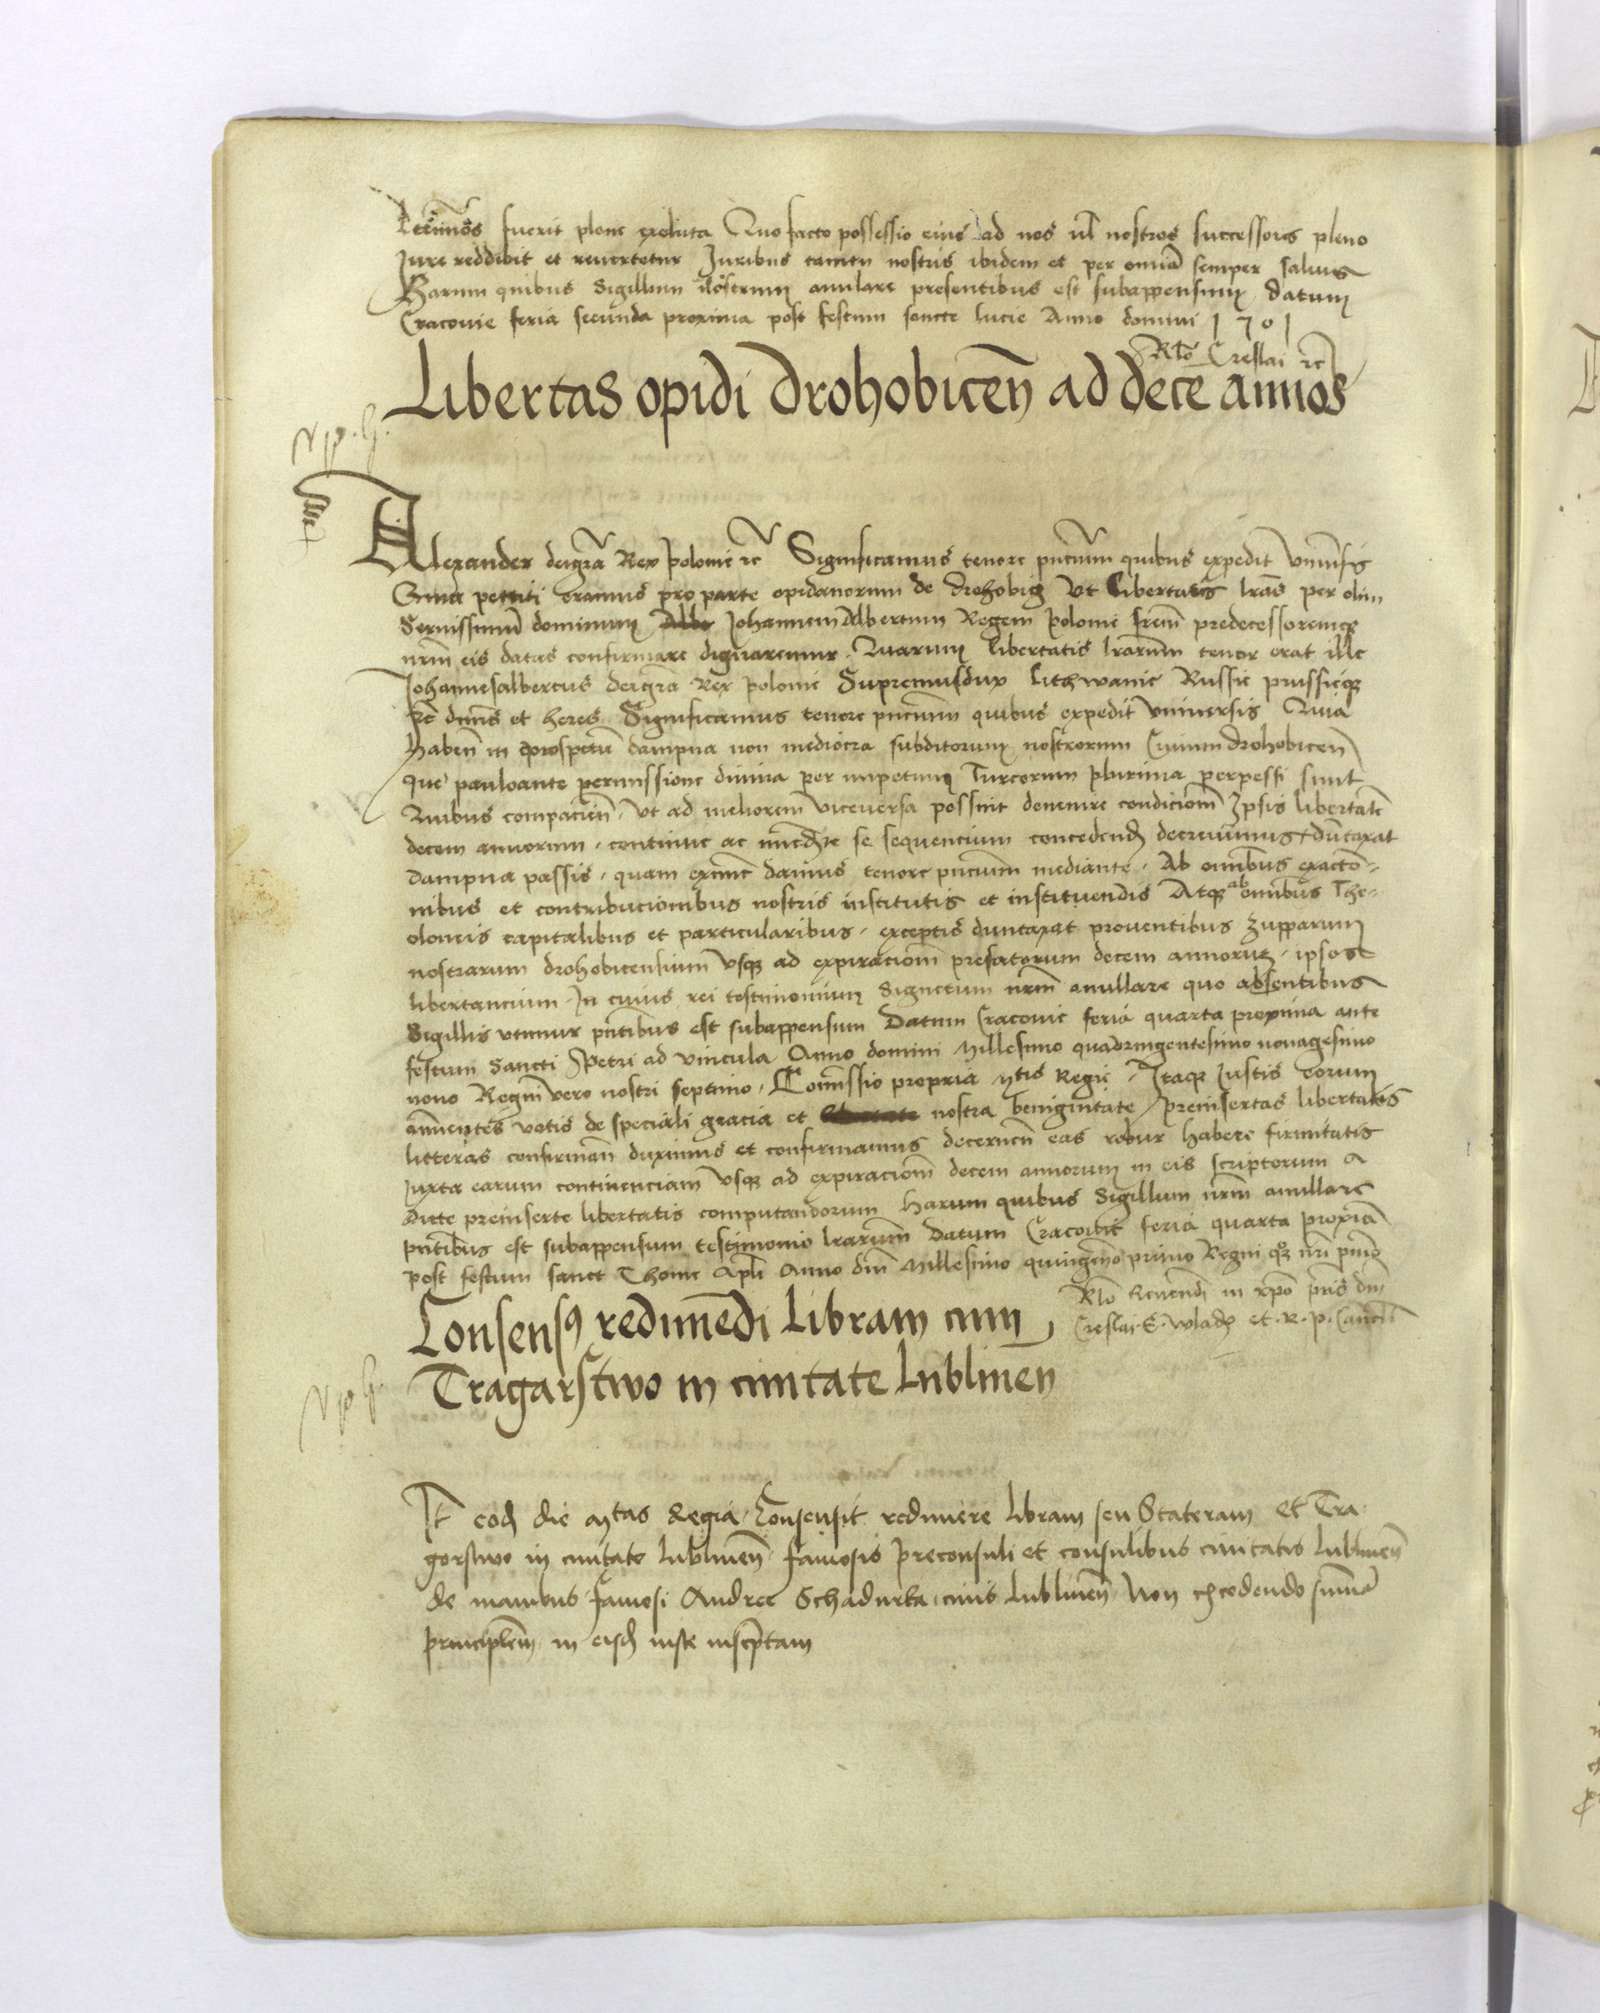 fuerit plene exoluta Quo facto possessio eius ad nos ul nostros successores pleno
Jure reddibit et reuertetur Juribus tamen nostris ibidem et per omnia semper saluis
Harum quibus Sigillum nostrum anulare presentibus est subappensum Datum
Cracouie feria secunda proxima post festum sancte lucie Anno domini 1501
Rlo Creslai rc
Libertas opidi Drohobicen ad dece annos
Alexander deigra Rex polonie rc Significamus tenore pncium quibus expedit vniuersis
Quia petiti eramus pro parte opidanorum de Drohobiz Ut libertatis lras per olim
Serenissimu dominum Johannem Albertum Regem polonie frem predecessoremqz
nrm eis datas confirmare dignaremur. Quarum libertatis lrarum tenor erat ille
Johannesalbertus deigra Rex polonie Supremusdux lithwanie Russie prussieqz
rc dnus et heres Significamus tenore pncium quibus expedit vniuersis Quia
habent in prospectu dampna non mediocra subditorum nostrorum Ciuium drohobicen
que pauloante permissione diuina per impetum Turcorum plurima perpessi sunt
Quibus compacien. Ut ad meliorem viceuersa possint deuenire condiciom Ipsis libertate
decem annorum. continue ac immediate se sequencium concedend decreuimus duntaxat
dampna passis. quam exnunc damus tenore pncium mediante. Ab omibus exactio-
nibus et contribucionibus nostris institutis et instituendis Atqz ab omnibus The-
oloneis capitalibus et particularibus. exceptis duntaxat prouentibus Zupparum
nostrarum drohobicensium usqz ad expiraciom prefatorum decem annorum. ipsos
libertancium. In cuius rei testimonium Signetum nrm anullare quo absentibus
Sigillis utimur pntibus est subappensum Datum Cracouie feria quarta proxima ante
festum Sancti Petri ad vincula Anno domini Millesimo quadringentesimo nonagesimo
nono Regni vero nostri septimo. Comissio propria mtis Regie. Itaqz Justis eorum
annuentes votis de speciali gracia et nostra benignitate preinsertas libertatis
litteras confirman duximus et confirmamus decernen eas robur habere firmitatis
Juxta earum continenciam usqz ad expiraciom decem annorum in eis scriptorum a
dicte preinserte libertatis computandorum Harum quibus Sigillum nrm anullare
pntibus est subappensum testimonio lrarum Datum Cracouie feria quarta proxia
post festum sanct Thome apli Anno dni Millesimo quingeno primo Regni qz nri primo
Rlo Reuendi in xpo pris dni
Creslai E. wladz et. R. p. Cancell
Consensus redimedi Libram cum
Tragarstwo in ciuitate Lublinen
It eod die mtas Regia Consensit redimere libram seu Stateram et Tra
garstwo in ciuitate lublinen famosis preconsuli et consulibus ciuitatis lublinen
de manibus famosi Andree Schadurka ciuis lublinen Non excedendo suma
principlem in eisd iuste inscptam